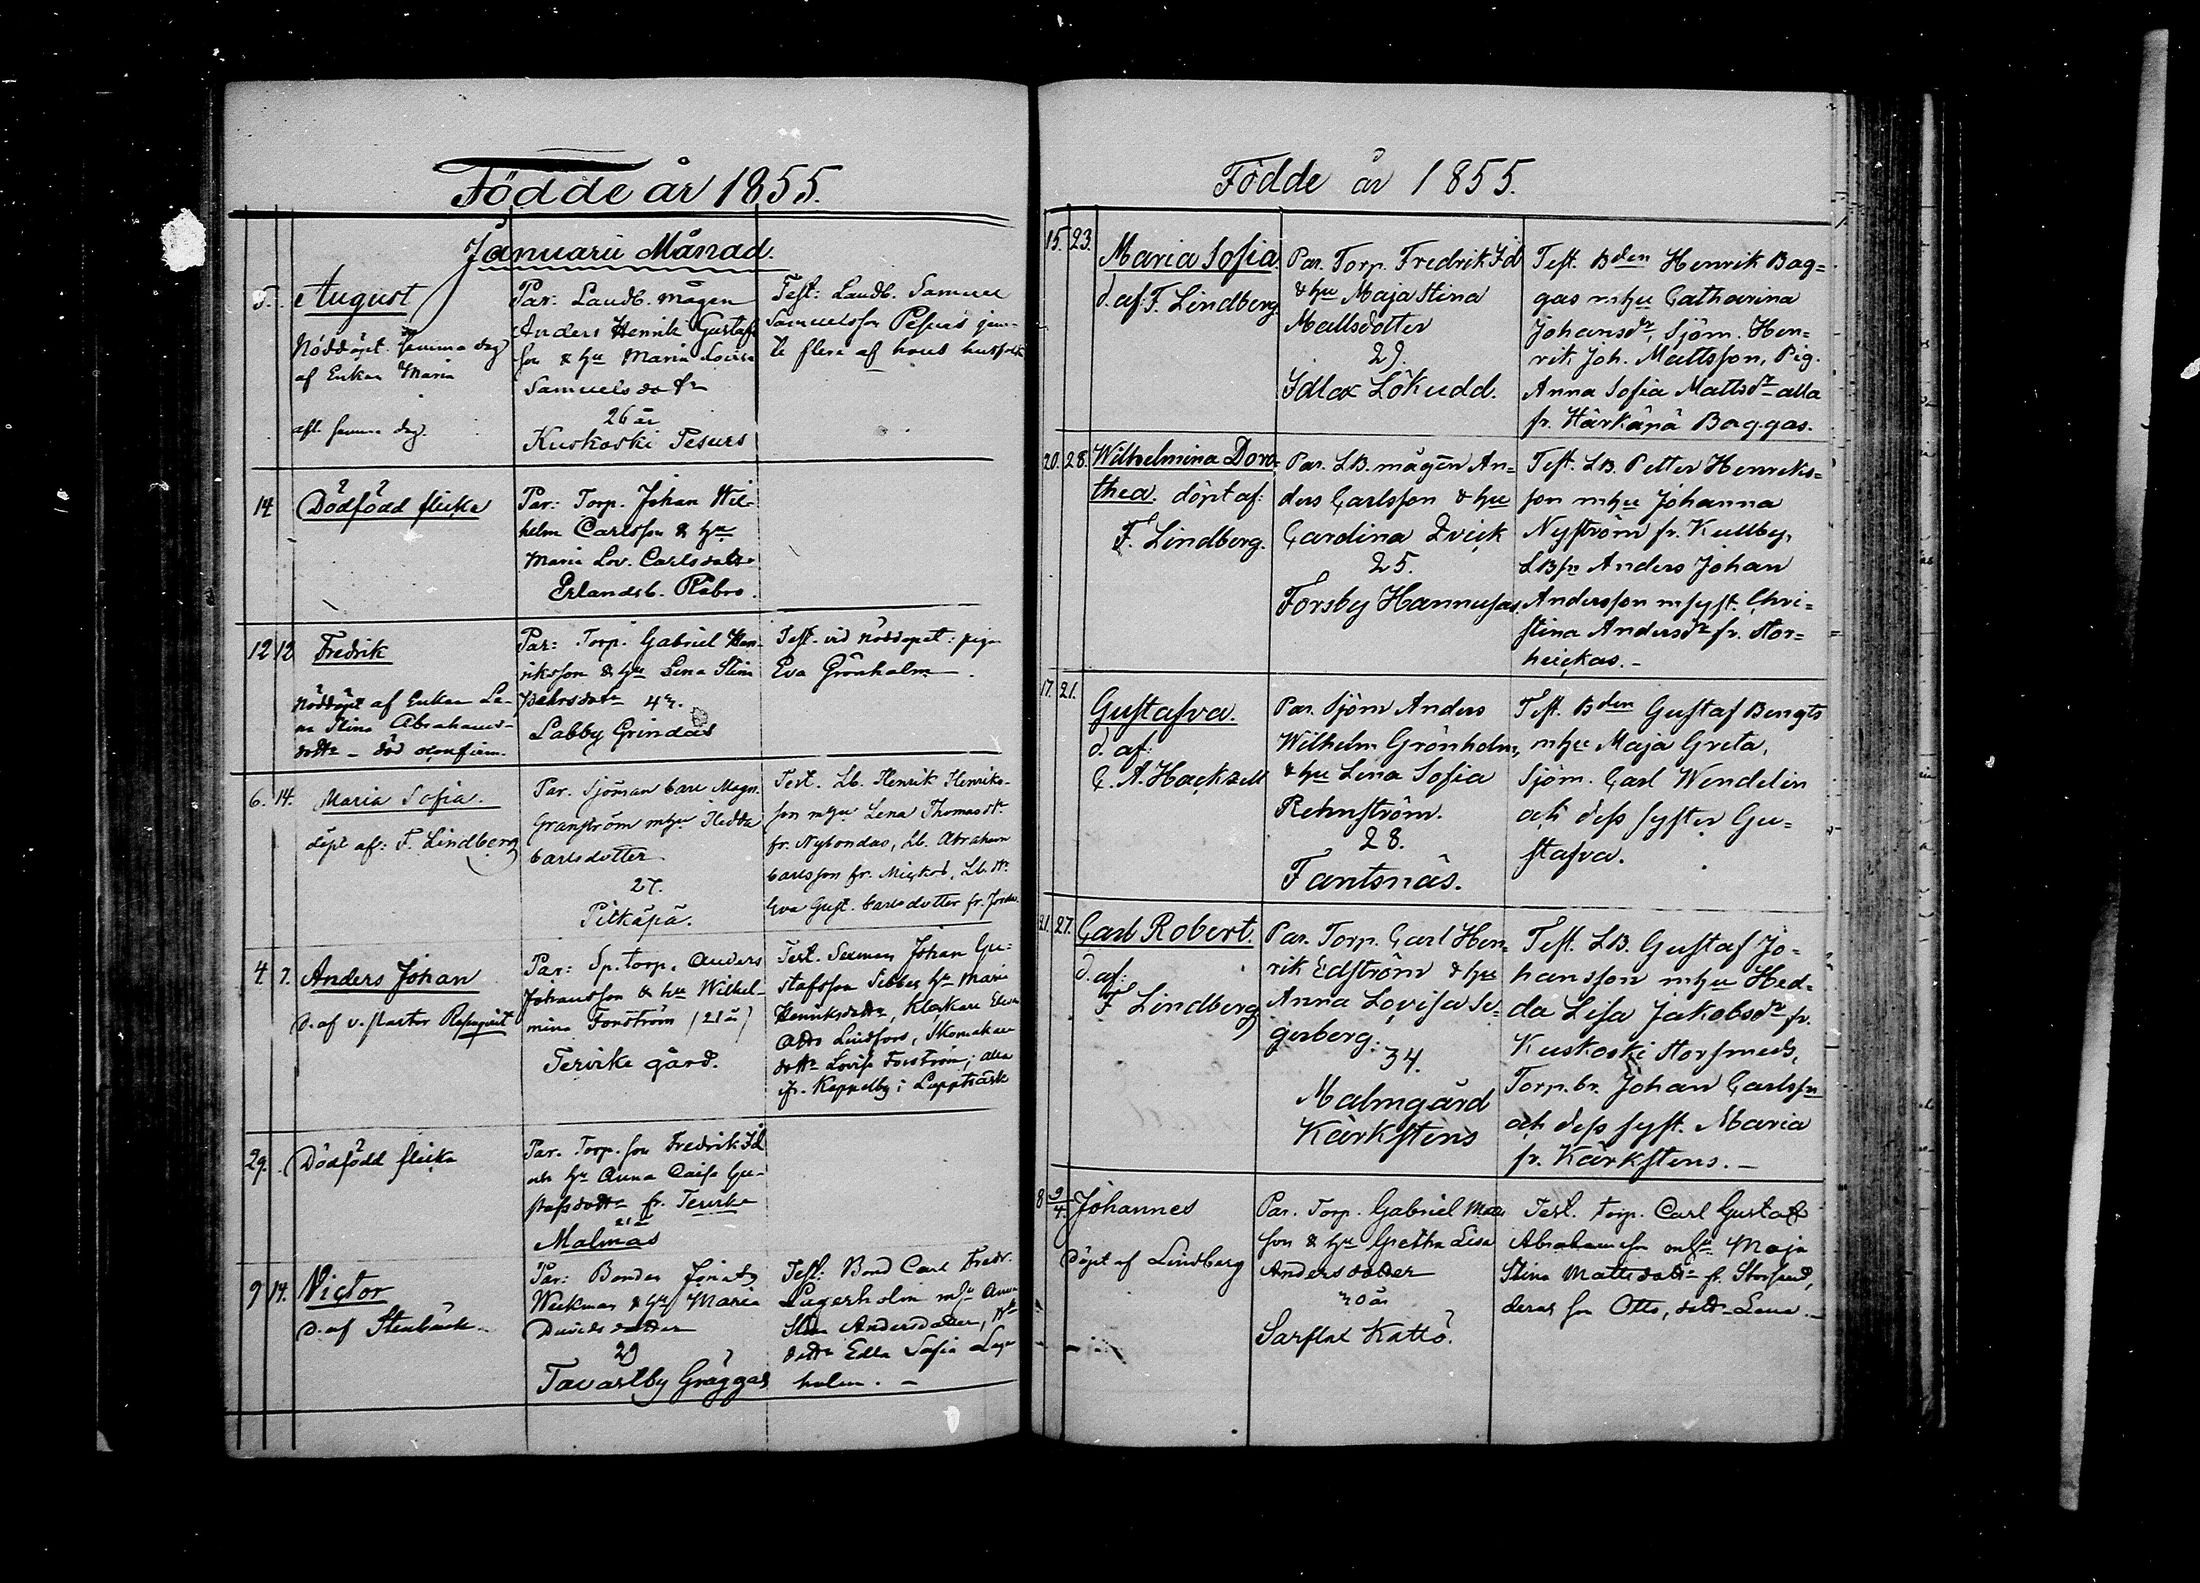 Födde år 1855.
Januarii Månad.
5.
August
Nöddöpt samma dag
af Enkan Maria
afl. samma dag.
Par: Landb. mågen
Anders Henrik Gustafs
son & hu Maria Lovisa
Samuelsdotr
26 år
Kuskoski Pesurs
Test: Landb. Samuel
Samuelsson Pesurs jem-
te flera af hans husfolk
14
Dödfödd flicka
Par: Torp. Johan Wil-
helm Carlsson & hu
Maria Lov. Carlsdotr
Erlandsb. Räbro.
12 12
Fredrik
Nöddöpt af Enkan Le-
na Stina Abrahams-
dottr - död
Par: Torp. Gabriel Hen-
riksson & hu Lena Stina
Labby Grindas
Test. vid nöddopet: piga
Eva Grönholm.
6. 14.
Maria Sofia.
döpt af: F. Lindberg
Par. Sjöman Carl Magn.
Granström mhu Hedda
Carlsdotter
27.
Pitkäpä.
Test. Lb. Henrik Henriks-
son mhu Lena Thomasdtr
fr. Nybondas, Lb. Abraham
Carlsson fr. Lb. dtr
Eva Gust. Carlsdotter fr.
4 7.
Anders Johan
D. af v. pastor Refuquist
Par: Sp. torp. Anders
Johansson & hu Wilhel-
mina Forström (21 år)
Tervike gård.
Test. Sexman Johan Gu-
stafsson Sebbes hu Maria
Henriksdottr, Klockare
Lindfors, Skomakare
dottr Lovisa Forström; alla
fr. Kappelby i Lappträsk
29.
Dödfödd flicka
Par. Torp. son Fredrik Id
och hu Anna Caisa Gu-
stafsdottr fr. Tervike
21 år
Malmas
9 14.
Victor
D. af Stenbäck.
Par: Bonden
Weckman & hu Maria
Davidsdotter
29
Tavastby Gräggas
Test: Bond Carl Fredr.
Lagerholm mhu Anna
Stina Andersdotter,
dottr Edla Sofia Lager
holm. -
Födde år 1855.
15. 23.
Maria Sofia.
d. af: F. Lindberg.
Par. Torp. Fredrik Id
& hu Maja Stina
Mattsdotter
29.
Idlax Lökudd.
Test. Bden Henrik Bag-
gas mhu Catharina
Johansdr, Sjöm. Hen-
rik Joh. Mattsson, Pig.
Anna Sofia Mattsdr alla
fr. Härkäpä Baggas.
20. 28.
Wilhelmina Doro-
thea. döpt af:
F. Lindberg.
Par. LB. mågen An-
ders Carlsson & hu
Carolina Qvick
25.
Forsby Hannusas
Test. LB. Petter Henriks-
son mhu Johanna
Nyström fr. Kullby,
LBsn Anders Johan
Andersson m syst. Chri-
stina Andersdr fr. Stor-
heickas. -
17. 21.
Gustafva.
d. af:
C. A. Hackzell
Par. Sjöm Anders
Wilhelm Grönholm,
& hu Lena Sofia
Rehnström.
28.
Fantsnäs.
Test. Bden Gustaf Bengts
mhu Maja Greta,
Sjöm. Carl Wendelin
och dess syster Gu-
stafva.
21. 27.
Carl Robert.
d. af:
F Lindberg
Par. Torp. Carl Hen-
rik Edström & hu
Anna Lovisa Se-
gerberg.
34.
Malmgård
Kärkstens
Test. LB. Gustaf Jo-
hansson mhu Hed-
da Lisa Jakobsdr fr.
Kuskoski Storsmeds,
Torp. br. Johan Carlssn
och dess syst. Maria
fr. Kärkstens. -
8 9/4.
Johannes
Döpt af Lindberg
Par. Torp. Gabriel Matts
son & hu Gretha Lisa
Andersdotter
Sarflax Kattö.
Test. Torp. Carl Gustaf
Abrahamsson mhu Maja
Stina Mattsdottr fr. Storsund,
deras son Otto, dottr Lena. -